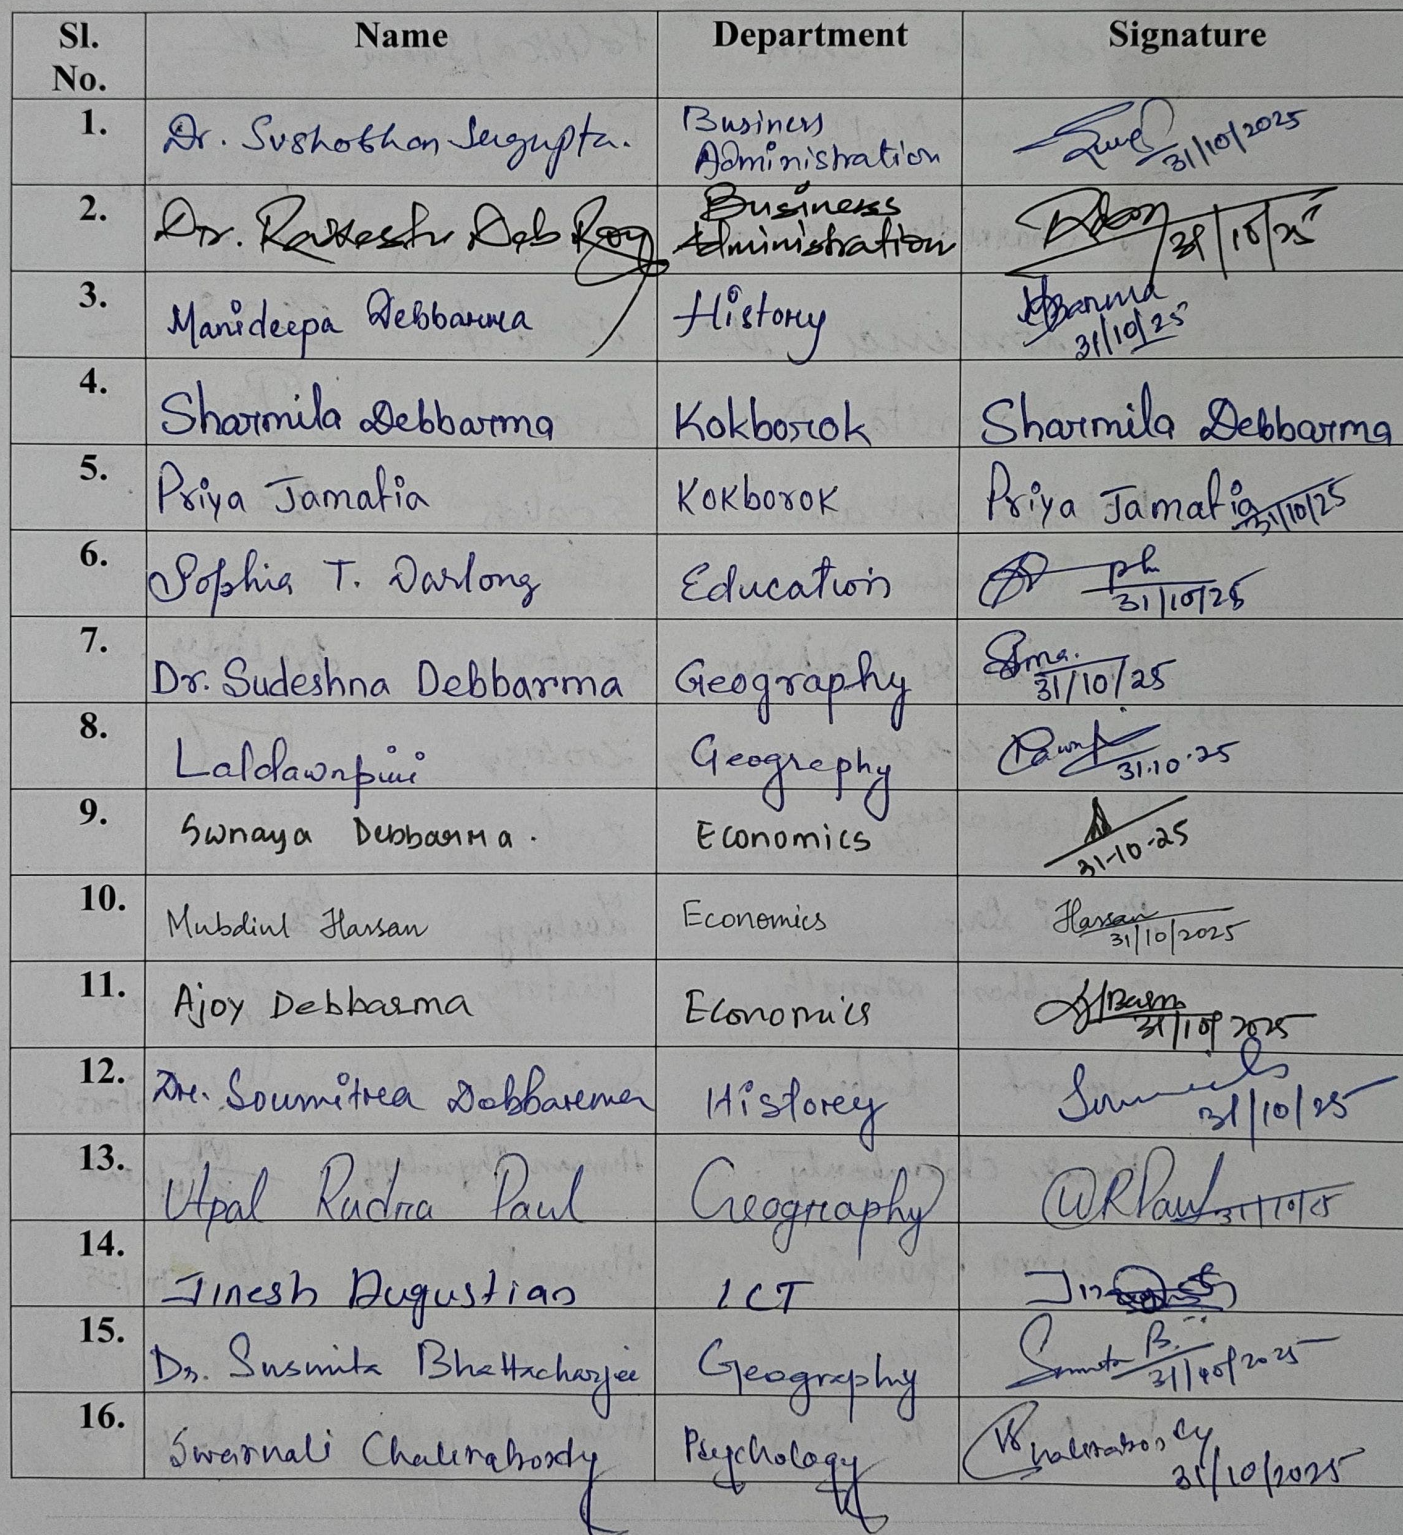 Sl. No. Name Department Signature
1. Dr. Sushobhan Sengupta. Business Administration 31/10/2025
2. Dr. Rakesh Deb Roy Business Administration 31/10/25
3. Manideepa Debbarma History Dbbarma 31/10/25
4. Sharmila Debbarma Kokborok Sharmila Debbarma
5. Priya Jamatia Kokborok Priya Jamatia 31/10/25
6. Sophia T. Darlong Education 31/10/25
7. Dr. Sudeshna Debbarma Geography 31/10/25
8. Laldawnpuii Geography 31.10.25
9. Sunaya Debbarma. Economics 31-10-25
10. Mubdiul Hassan Economics Hassan 31/10/2025
11. Ajoy Debbarma Economics 31/10/2025
12. Dr. Soumitra Debbarma History 31/10/25
13. Utpal Rudra Paul Geography URPaul 31/10/25
14. Jinesh Augustian ICT
15. Dr. Susmita Bhattacharjee Geography Susmita B. 31/10/2025
16. Swarnali Chakraborty Psychology Chakraborty 31/10/2025